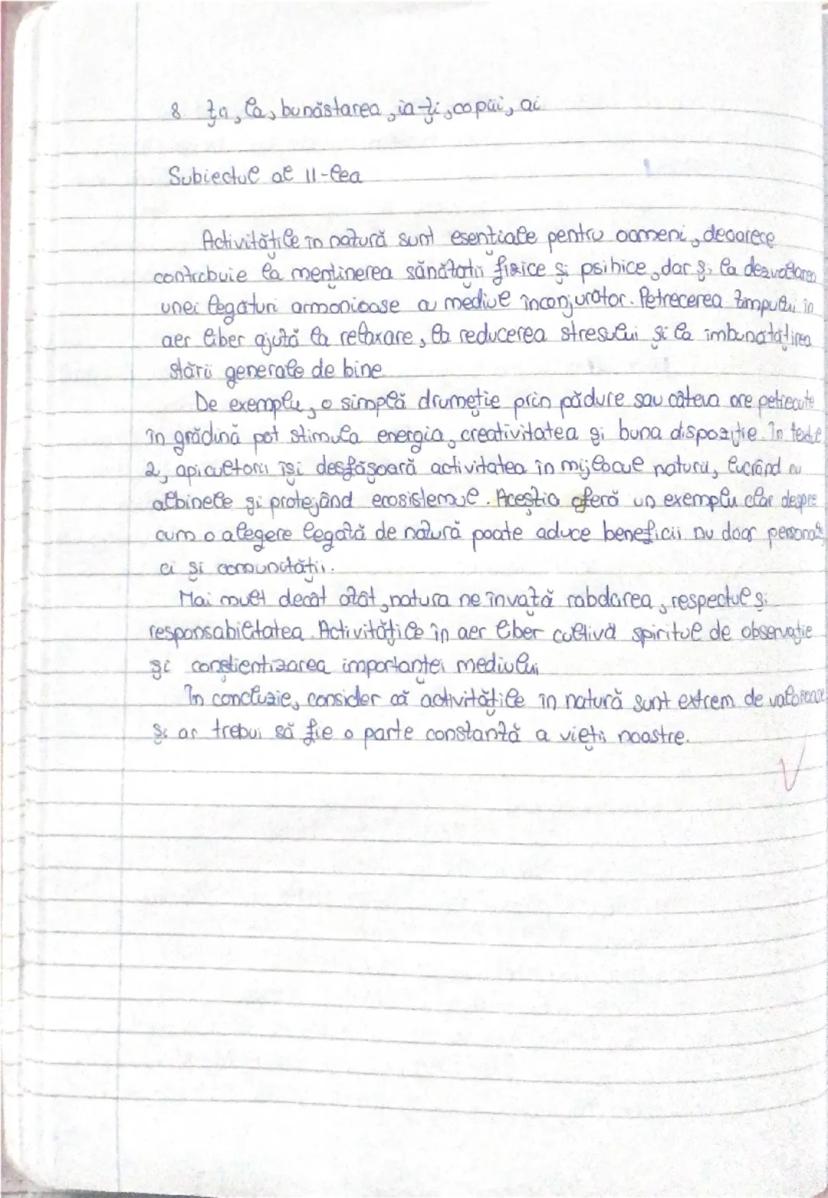 8 ța, la, bunăstarea, ia-ți, copiii, ai
Subiectul al II-lea
Activitățile în natură sunt esențiale pentru oameni, deoarece
contribuie la menținerea sănătății fizice și psihice, dar și la dezvoltarea
unei legături armonioase cu mediul înconjurător. Petrecerea timpului în
aer liber ajută la relaxare, la reducerea stresului și la îmbunatățirea
stării generale de bine
De exemplu, o simplă drumeție prin pădure sau câteva ore petrecute
în grădină pot stimula energia, creativitatea și buna dispoziție. În textul
2, apicultorii își desfășoară activitatea în mijlocul naturii, lucrând cu
albinele și protejând ecosistemul. Aceștia oferă un exemplu clar despre
cum o alegere legată de natură poate aduce beneficii nu doar personale,
ci și comunității.
Mai mult decât atât, natura ne învață rabdarea, respectul și
responsabilitatea. Activitățile în aer liber cultivă spiritul de observație
și conștientizarea importanței mediului
În concluzie, consider că activitățile în natură sunt extrem de valoroase
și ar trebui să fie o parte constantă a vieții noastre.